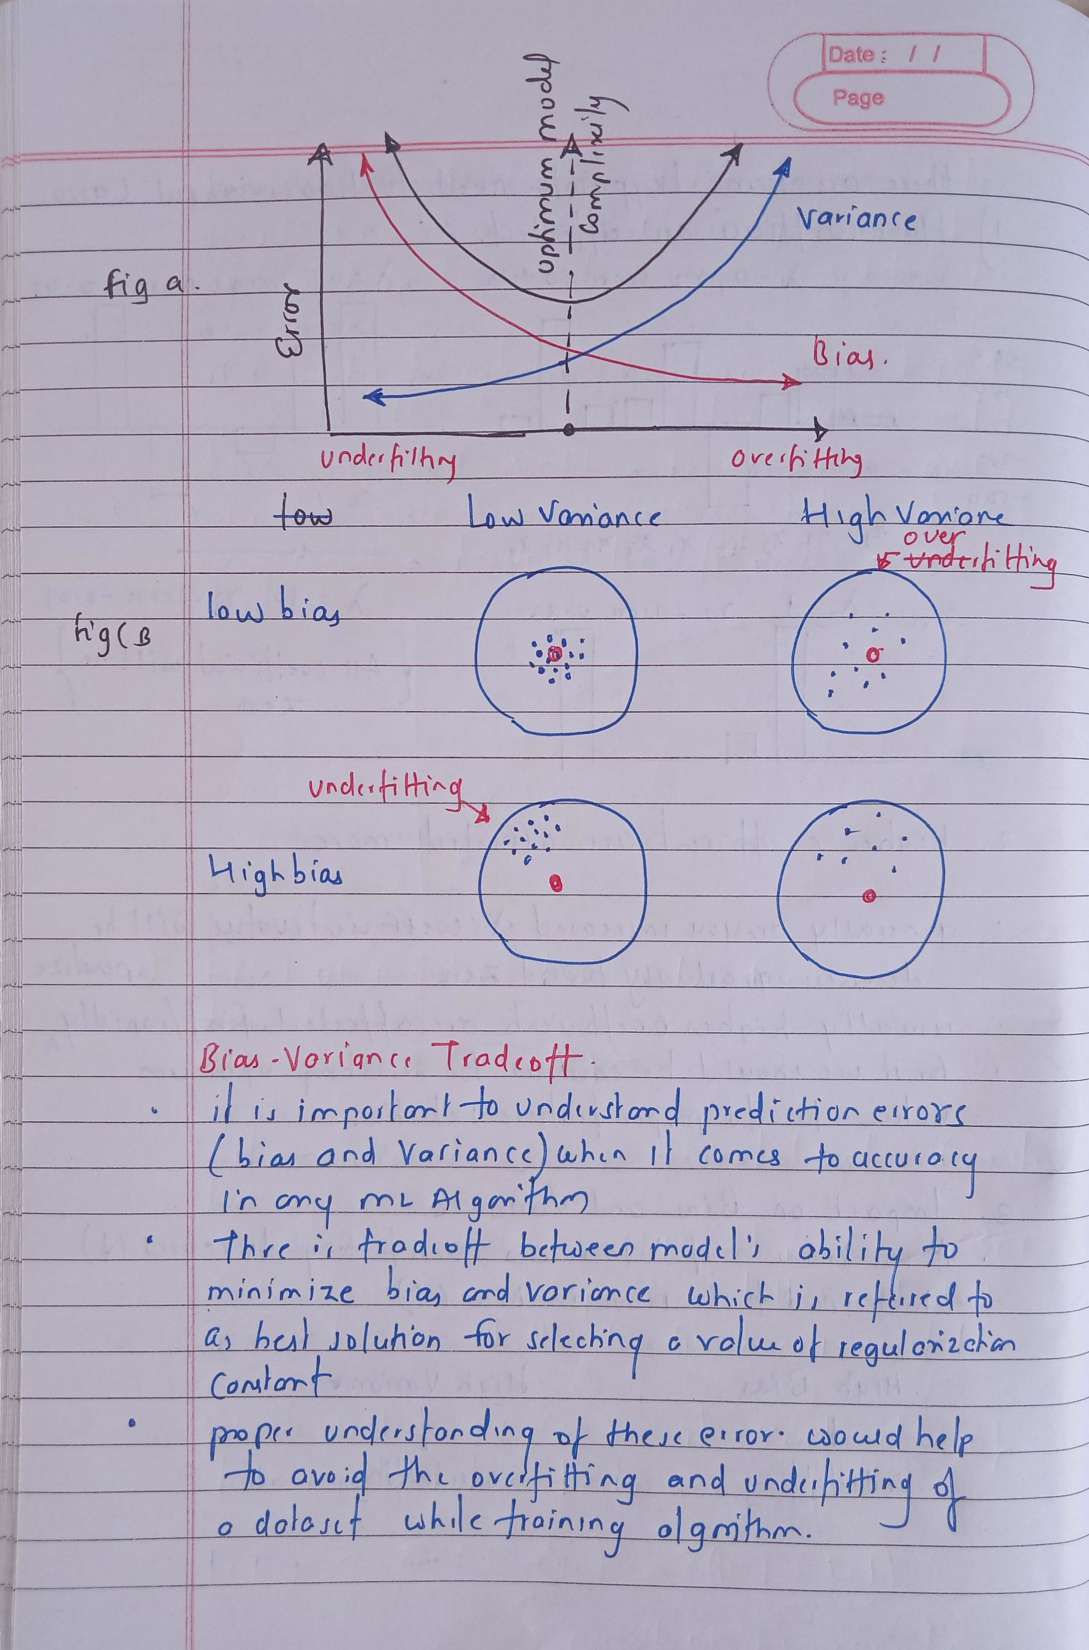 Date : / /
Page
optimum model
complixity
Variance
fig a.
Error
Bias.
underfitting
overfitting
low
Low Variance
High Variance
over
underfitting
low bias
fig(B
underfitting
High bias
Bias-Variance Tradeoff.
. it is important to understand prediction errors
(bias and Variance) when it comes to accuracy
in any ML Algorithm
. Thre is tradeoff between model's ability to
minimize bias and variance which is refered to
as best solution for selecting a value of regularization
constant
. proper understanding of these error. would help
to avoid the overfitting and underfitting of
a dataset while training algorithm.